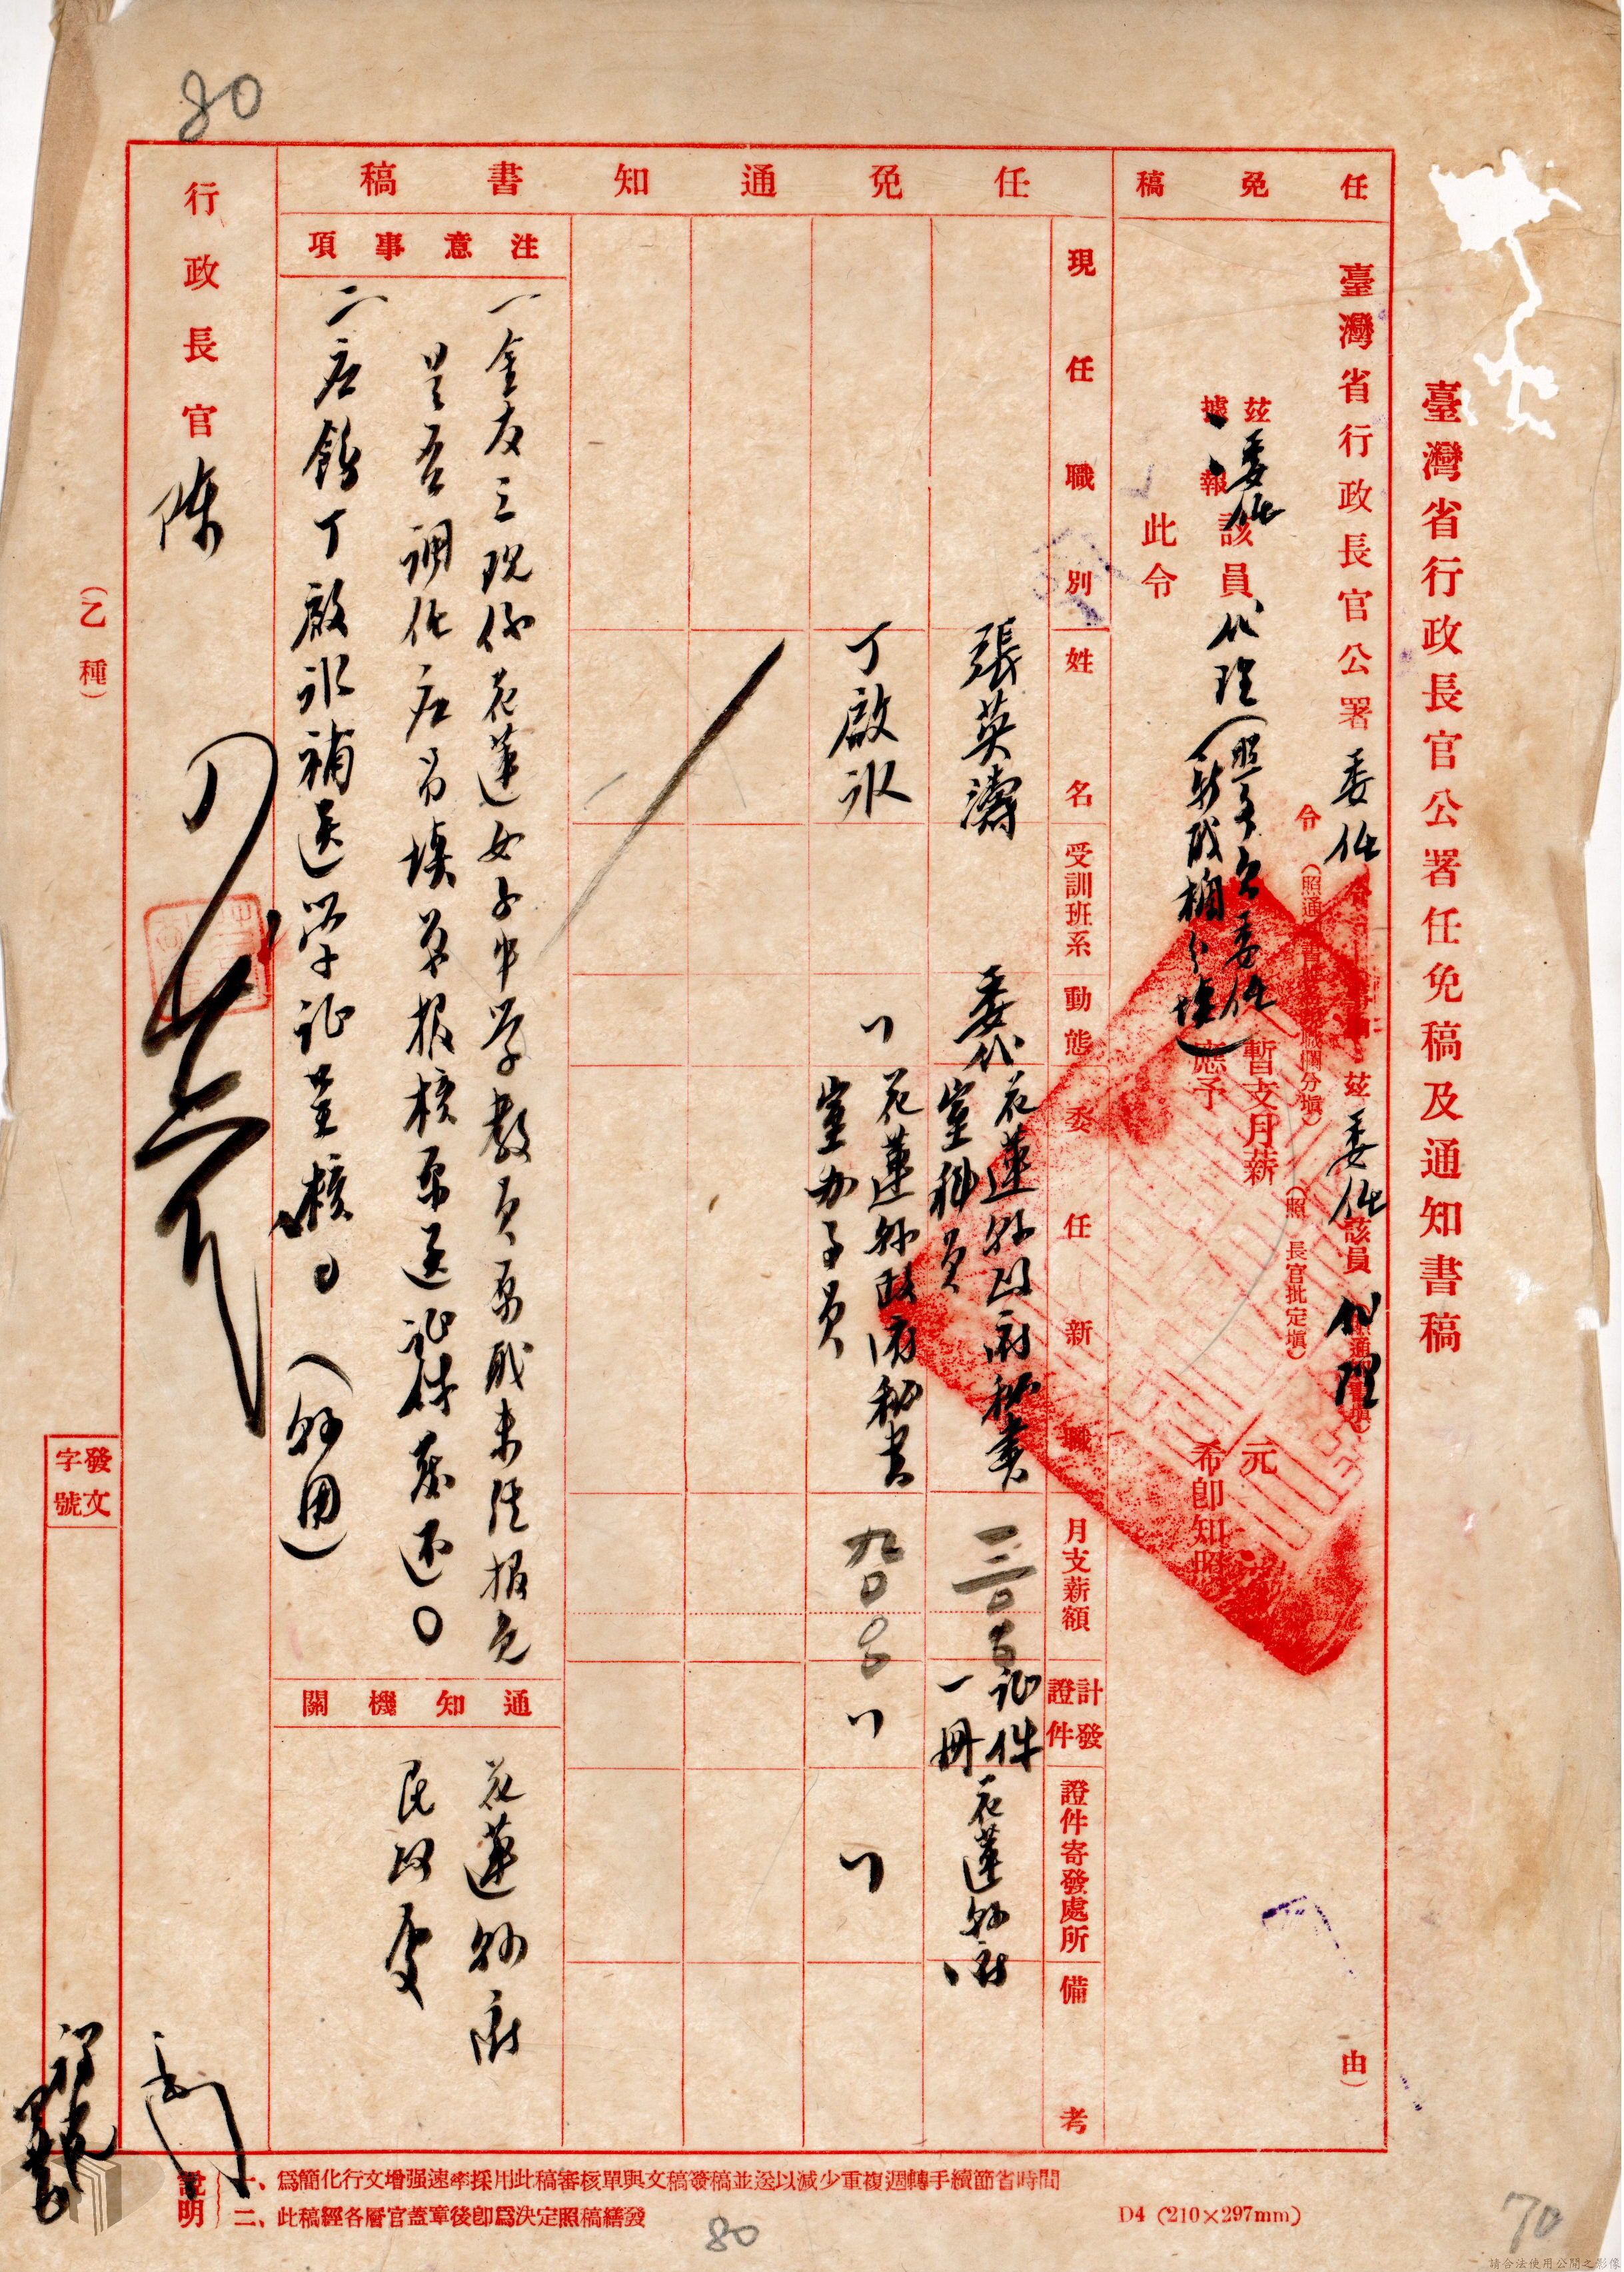 80
臺灣省行政長官公署任免稿及通知書稿
任免稿
臺灣省行政長官公署委任令
令
茲委任該員代理
由)
(照 長官批定塡)
茲委任該員代理(照予以委任)暫支月薪 元
據報 (新職欄分塡)應予 希卽知照
此令
任免通知書稿
現任職別 姓名 受訓班系 動態 委任新職 月支薪額 計發證件 證件寄發處所 備考
張英濤 委代 花蓮縣政府秘書室科員 一三〇 证件一冊 花蓮縣府
丁啟冰 〃 花蓮縣政府秘書室办事員 九〇 〃 〃
注意事項
一金友三現係花蓮女子中學教員原職未經報免
是否調任应另填单报核原送证件發还〇
二应飭丁啟冰補送学证董核。(縣團)
通知機關
花蓮縣府
民政處
行政長官陳
(乙種)
發文字號
說明
一、爲簡化行文增强速率採用此稿審核單與文稿簽稿並送以減少重複週轉手續節省時間
二、此稿經各層官蓋章後卽爲決定照稿繕發
D4 (210×297mm)
80
70
請合法使用公開之影像